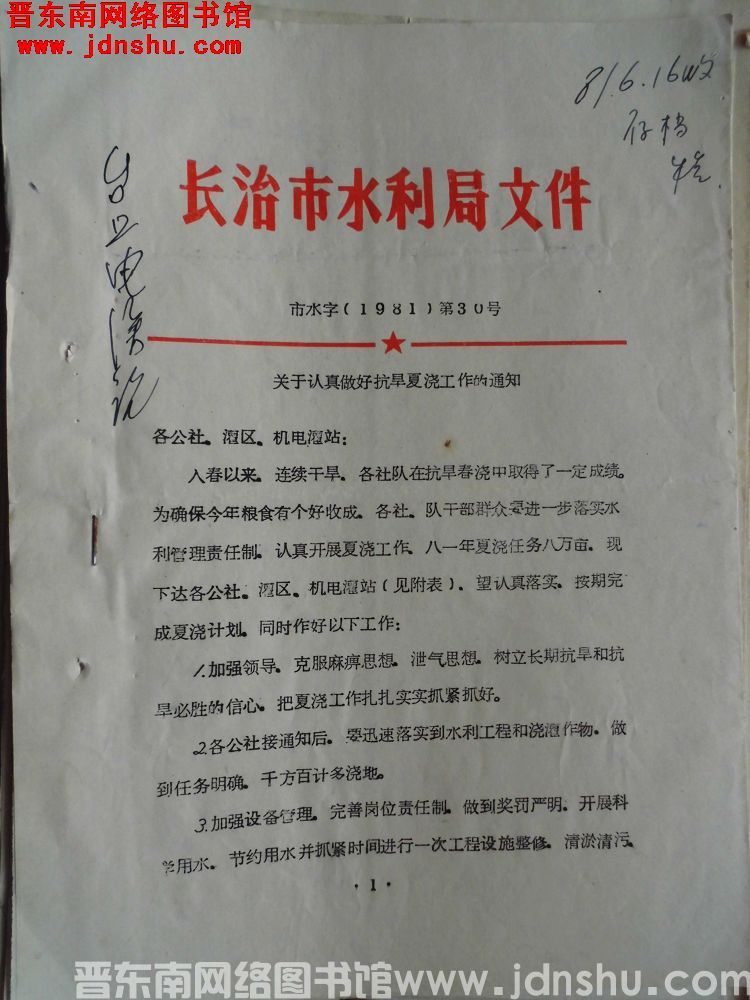 晋东南网络图书馆
www.jdnshu.com
81.6.16收
存档
长治市水利局文件
市水字(1981)第30号
关于认真做好抗旱夏浇工作的通知
各公社。灌区、机电灌站:
入春以来。连续干旱。各社队在抗旱春浇中取得了一定成绩。
为确保今年粮食有个好收成。各社。队干部群众要进一步落实水
利管理责任制。认真开展夏浇工作。八一年夏浇任务八万亩。现
下达各公社。灌区、机电灌站(见附表)。望认真落实。按期完
成夏浇计划。同时作好以下工作:
1.加强领导。克服麻痹思想。泄气思想。树立长期抗旱和抗
旱必胜的信心。把夏浇工作扎扎实实抓紧抓好。
2.各公社接通知后。要迅速落实到水利工程和浇灌作物。做
到任务明确。千方百计多浇地。
3.加强设备管理。完善岗位责任制。做到奖罚严明。开展科
学用水。节约用水并抓紧时间进行一次工程设施整修。清淤清污。
·1·
晋东南网络图书馆www.jdnshu.com